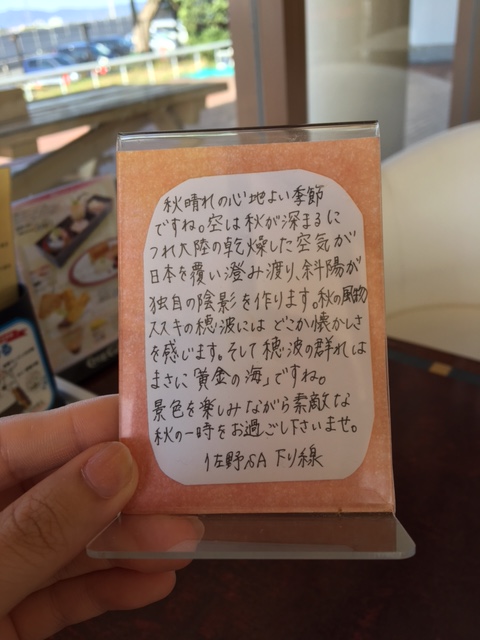 秋晴れの心地よい季節
ですね。空は秋が深まるに
つれ大陸の乾燥した空気が
日本を覆い澄み渡り、斜陽が
独自の陰影を作ります。秋の風物
ススキの穂波には どこか懐かしさ
を感じます。そして穂波の群れは
まさに「黄金の海」ですね。
景色を楽しみながら素敵な
秋の一時をお過ごし下さいませ。
佐野SA 下り線